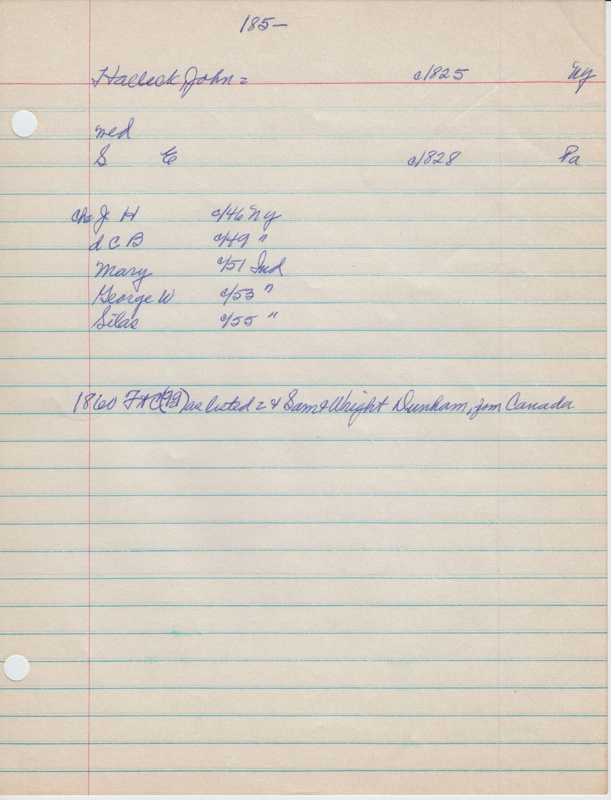 185-
Halleck, John = c/1825 NY
med
S E c/1828 Pa
Chn J H c/46 NY
d C B c/49 "
Mary c/51 Ind
George W c/53 "
Silas c/55 "
1860 as listed = & Sam & Wright Dunham, from Canada